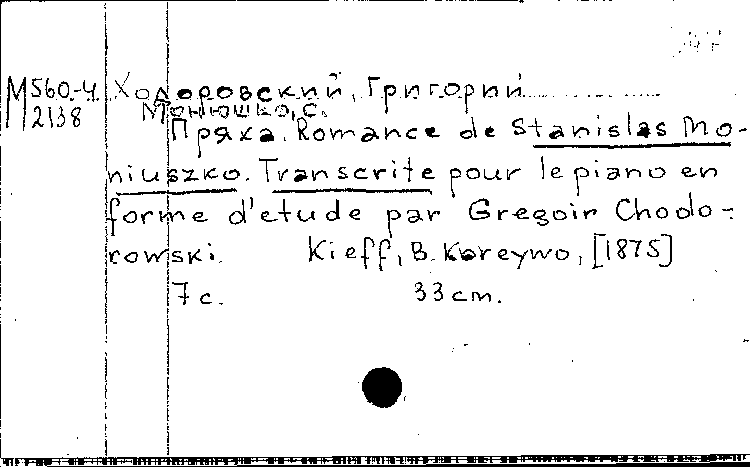 М560-4 Ходоровский, Григорий
2138 Монюшко, С.
Пряха. Romance de Stanislas Mo-
niuszko. Transcrite pour le piano en
forme d'etude par Gregoir Chodo-
rowski. Kieff, B. Koreywo, [1875]
7 с. 33 cm.